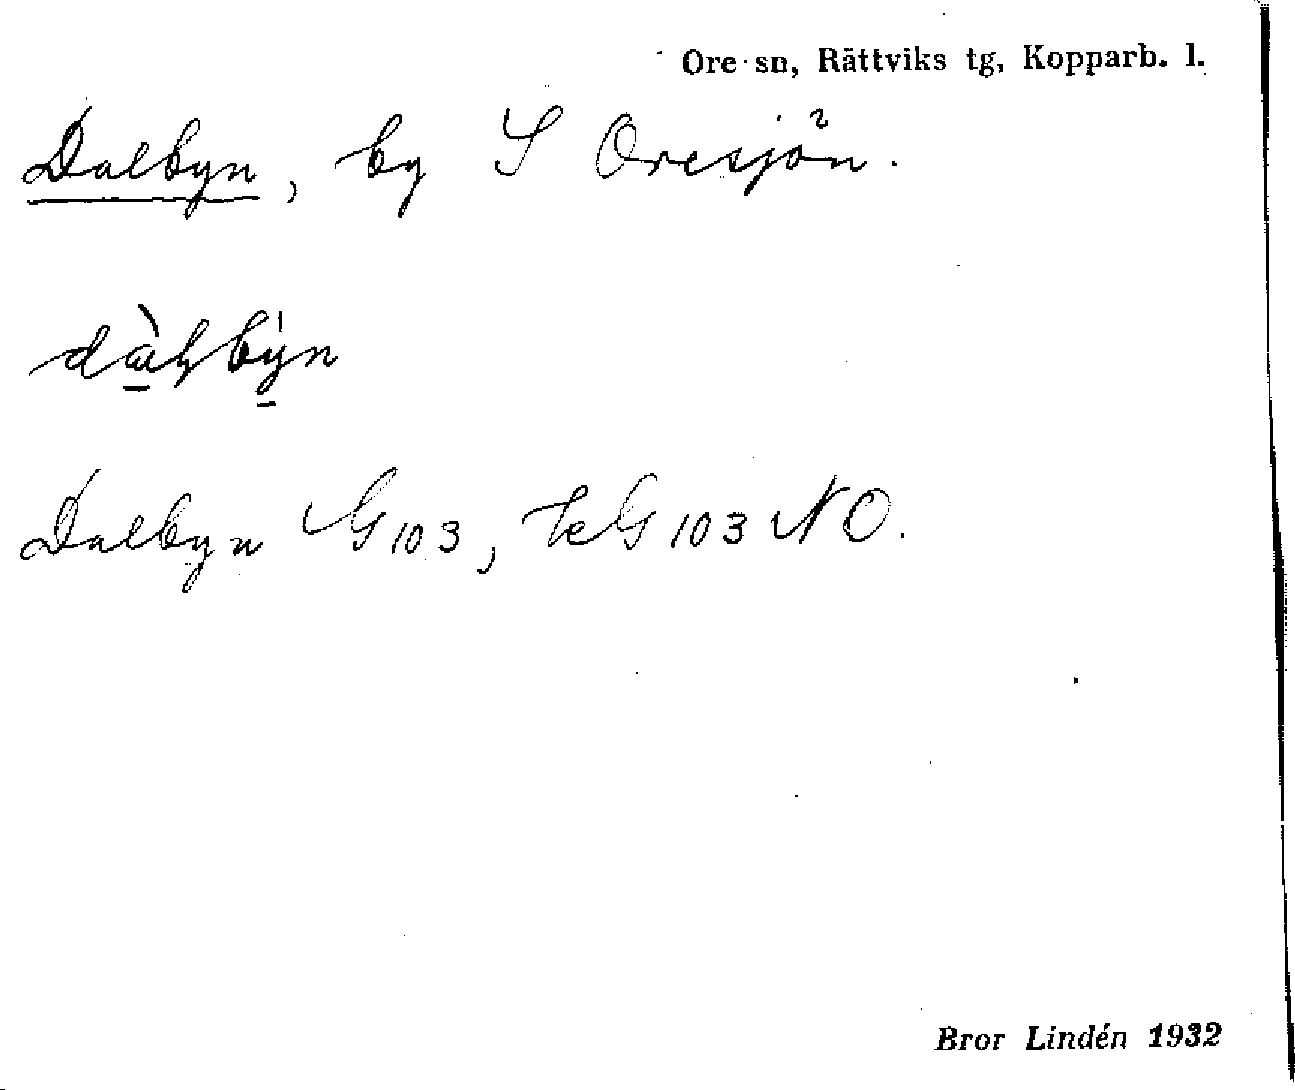 Ore sn, Rättviks tg, Kopparb. l.
Dalbyn, by S Oresjön.
Dalbyn G103, KG103 NO.
Bror Lindén 1932